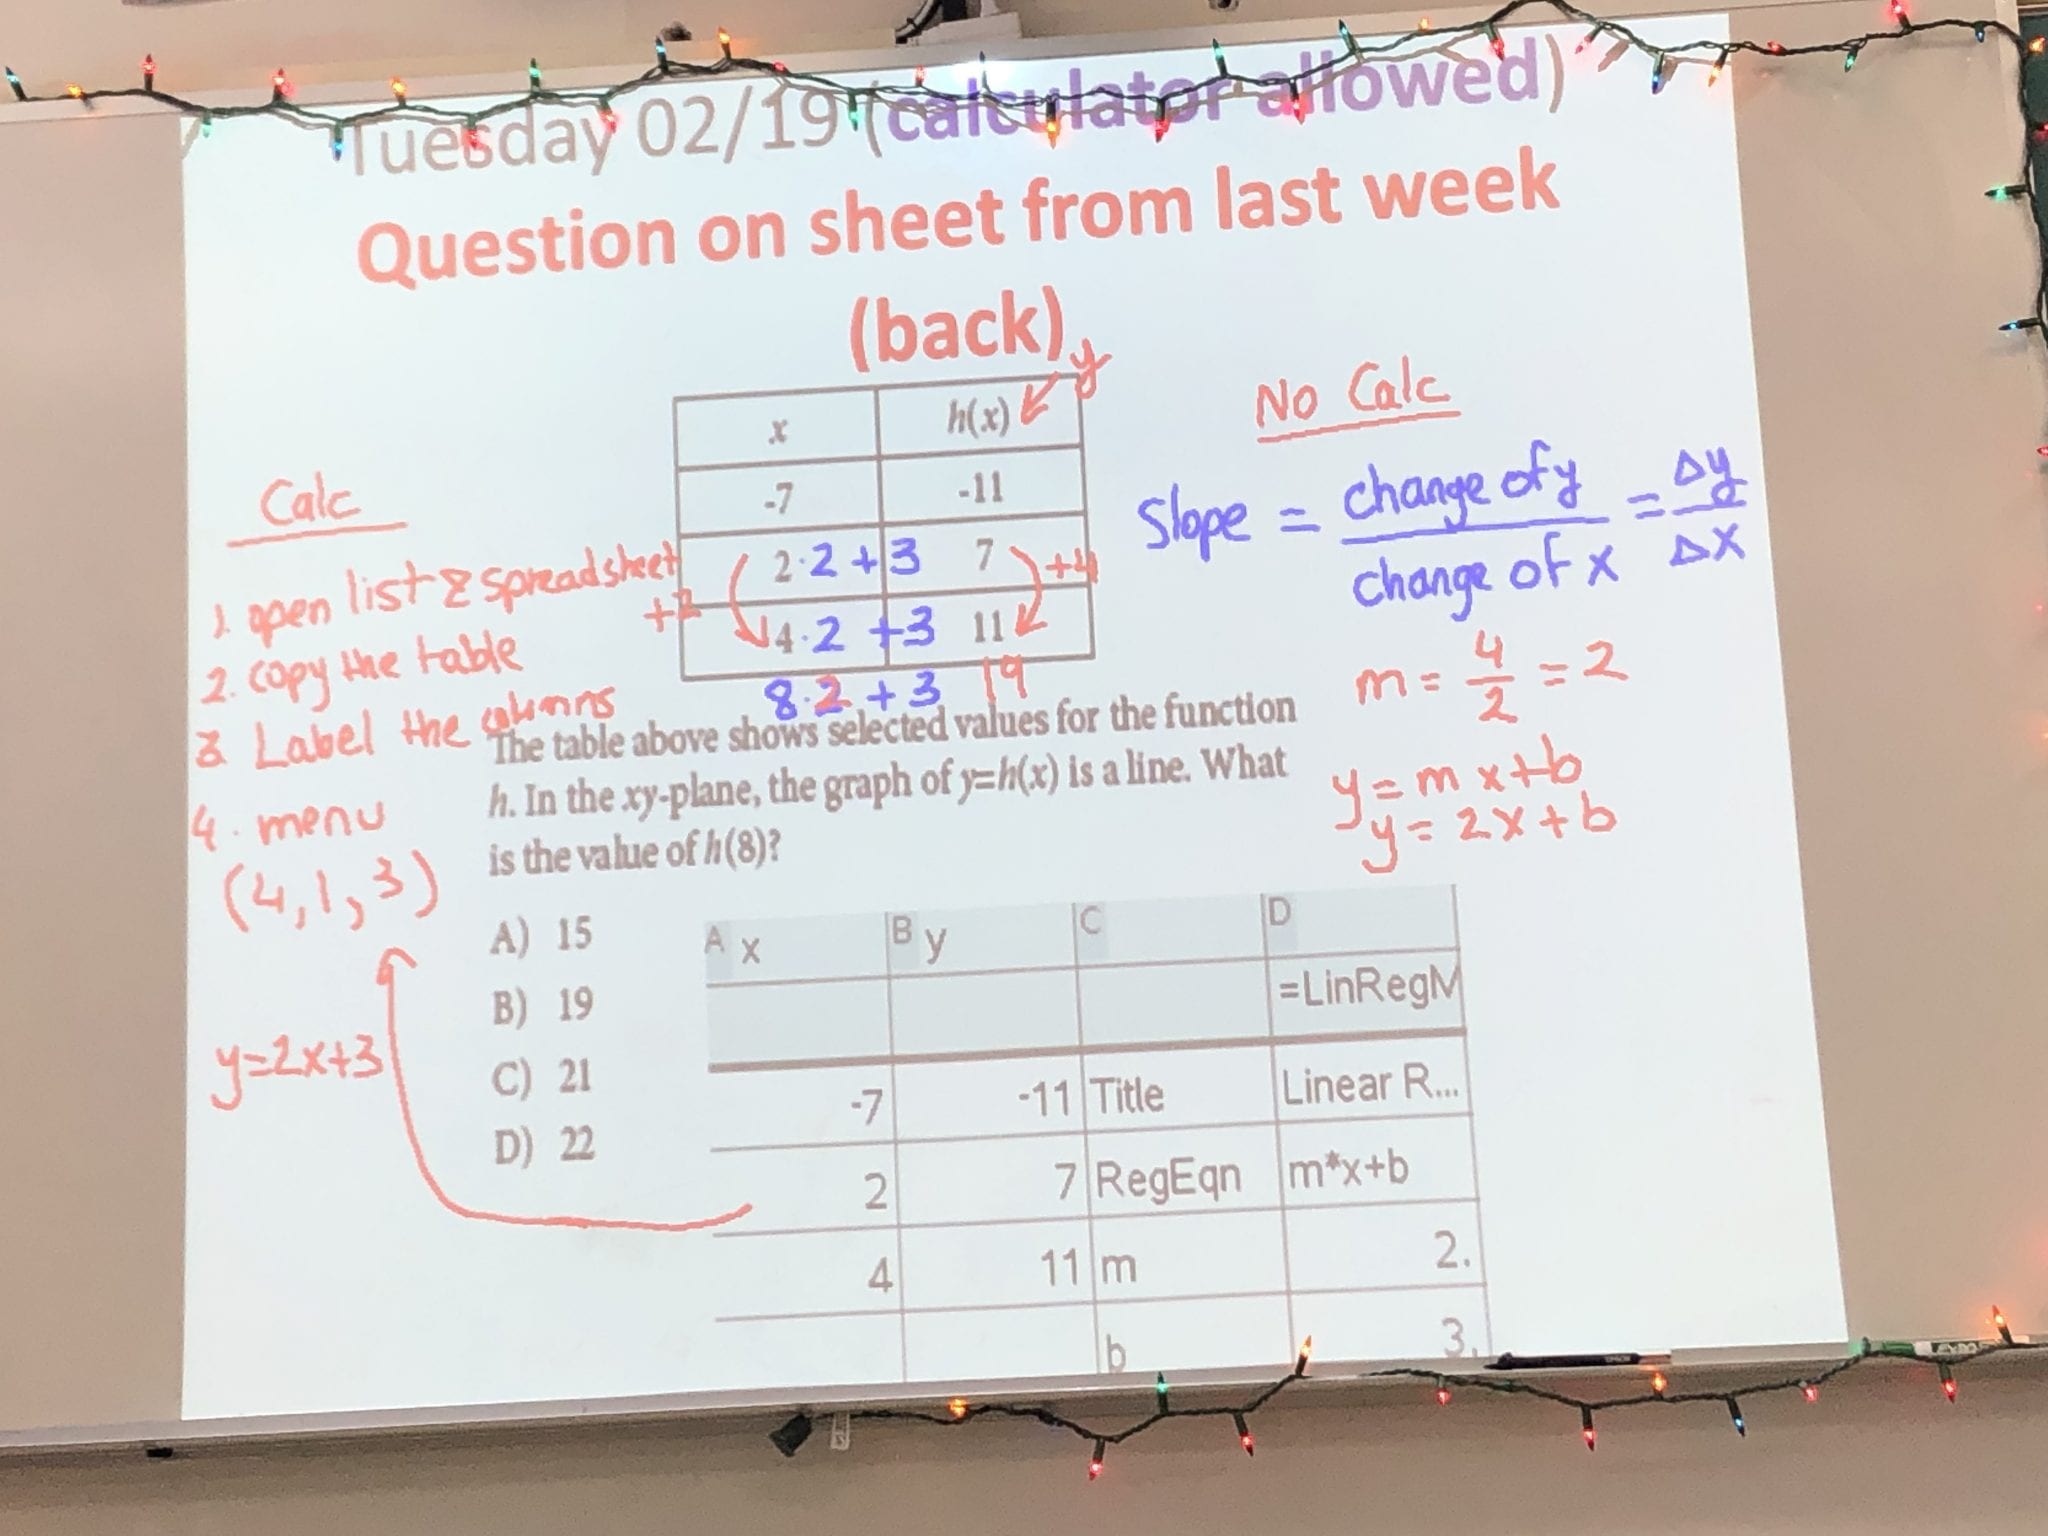 Tuesday 02/19 (calculator allowed)
Question on sheet from last week
(back)
y
x h(x)
-7 -11
2·2+3 7
+2 +4
4·2+3 11
8·2+3 19
Calc
1. open list & spreadsheet
2. copy the table
3 Label the columns
4. menu
(4,1,3)
y=2x+3
No Calc
Slope = change of y / change of x = Δy / Δx
m = 4/2 = 2
y = m x+b
y = 2x+b
The table above shows selected values for the function
h. In the xy-plane, the graph of y=h(x) is a line. What
is the value of h(8)?
A) 15
B) 19
C) 21
D) 22
A x B y C D
=LinRegM
-7 -11 Title Linear R...
2 7 RegEqn m*x+b
4 11 m 2.
b 3.